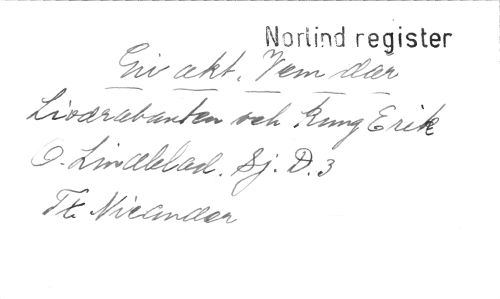 Norlind register
Giv akt. Vem där
Livdrabanten och kung Erik
O. Lindblad. Sj. D. 3
T. Nicander